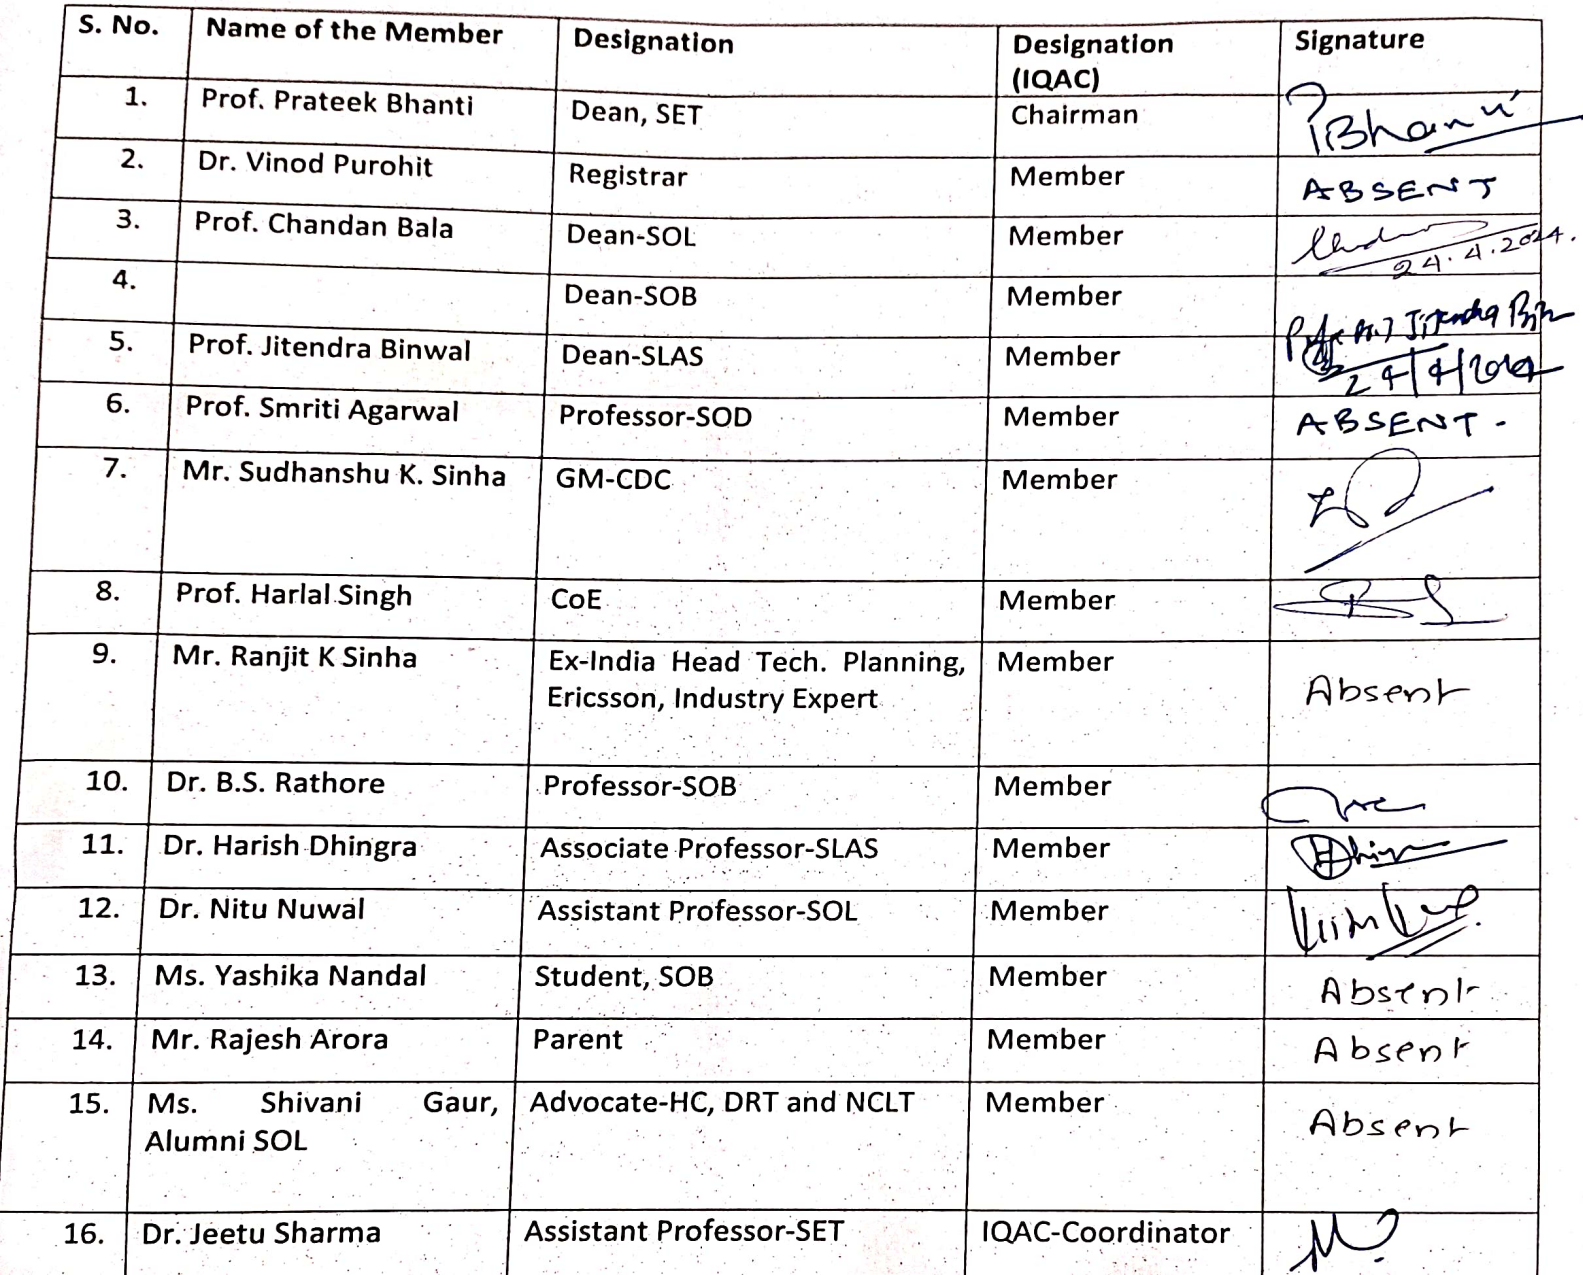 S. No. Name of the Member Designation Designation (IQAC) Signature
1. Prof. Prateek Bhanti Dean, SET Chairman PBhanti
2. Dr. Vinod Purohit Registrar Member ABSENT
3. Prof. Chandan Bala Dean-SOL Member 24.4.2024.
4. Dean-SOB Member
5. Prof. Jitendra Binwal Dean-SLAS Member Jitendra 24/4/2024
6. Prof. Smriti Agarwal Professor-SOD Member ABSENT.
7. Mr. Sudhanshu K. Sinha GM-CDC Member
8. Prof. Harlal Singh CoE Member
9. Mr. Ranjit K Sinha Ex-India Head Tech. Planning, Member
Ericsson, Industry Expert Absent
10. Dr. B.S. Rathore Professor-SOB Member
11. Dr. Harish Dhingra Associate Professor-SLAS Member
12. Dr. Nitu Nuwal Assistant Professor-SOL Member
13. Ms. Yashika Nandal Student, SOB Member Absent
14. Mr. Rajesh Arora Parent Member Absent
15. Ms. Shivani Gaur, Advocate-HC, DRT and NCLT Member
Alumni SOL Absent
16. Dr. Jeetu Sharma Assistant Professor-SET IQAC-Coordinator